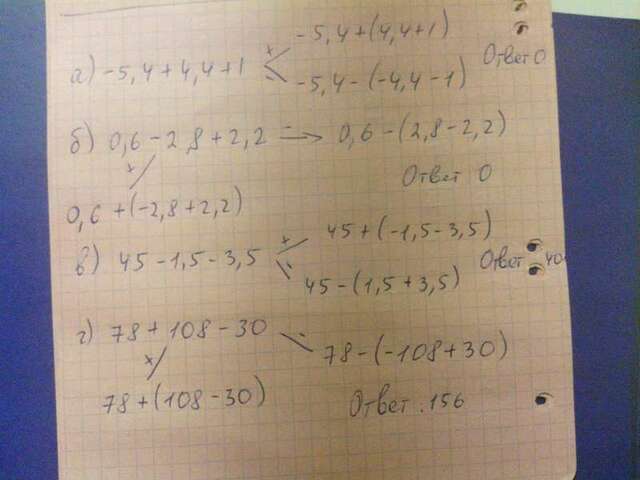 -5,4+(4,4+1)
а) -5,4+4,4+1 + -
Ответ 0
-5,4-(-4,4-1)
б) 0,6-2,8+2,2 - 0,6-(2,8-2,2)
+
Ответ 0
0,6+(-2,8+2,2)
45+(-1,5-3,5)
в) 45-1,5-3,5 + -
Ответ 40
45-(1,5+3,5)
г) 78+108-30 -
78-(-108+30)
+
78+(108-30)
Ответ.156